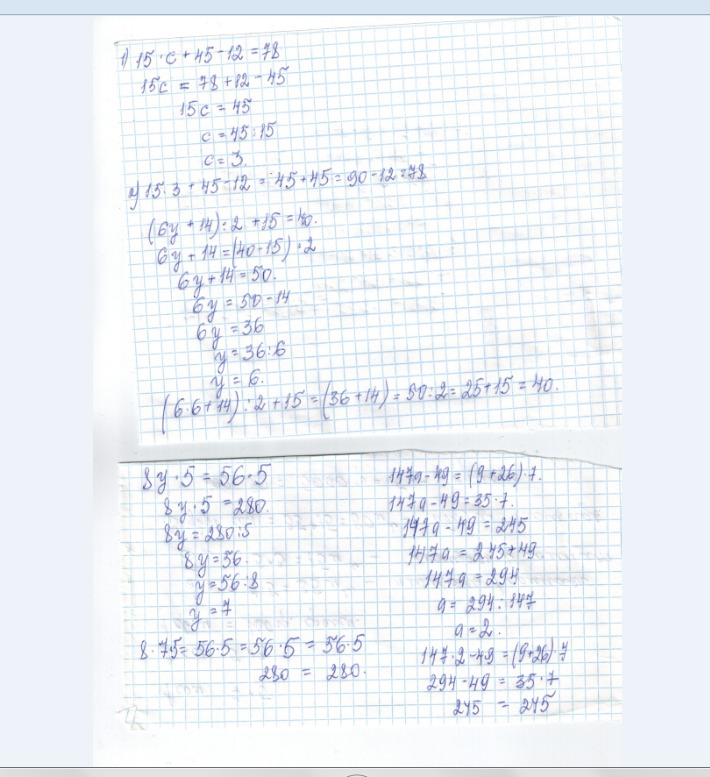 1) 15·c + 45 - 12 = 78
15c = 78 + 12 - 45
15c = 45
c = 45:15
c = 3.
2) 15·3 + 45 - 12 = 45 + 45 = 90 - 12 = 78
(6y + 14):2 + 15 = 40.
6y + 14 = (40 - 15)·2
6y + 14 = 50.
6y = 50 - 14
6y = 36
y = 36:6
y = 6.
(6·6 + 14):2 + 15 = (36 + 14) = 50:2 = 25 + 15 = 40.
8y·5 = 56·5
8y·5 = 280.
8y = 280:5
8y = 56.
y = 56:8
y = 7
8·75 = 56·5 = 56·5 = 56·5
280 = 280.
147a - 49 = (9 + 26)·7.
147a - 49 = 35·7.
147a - 49 = 245
147a = 245 + 49
147a = 294
a = 294:147
a = 2.
147·2 - 49 = (9 + 26)·7
294 - 49 = 35·7
245 = 245